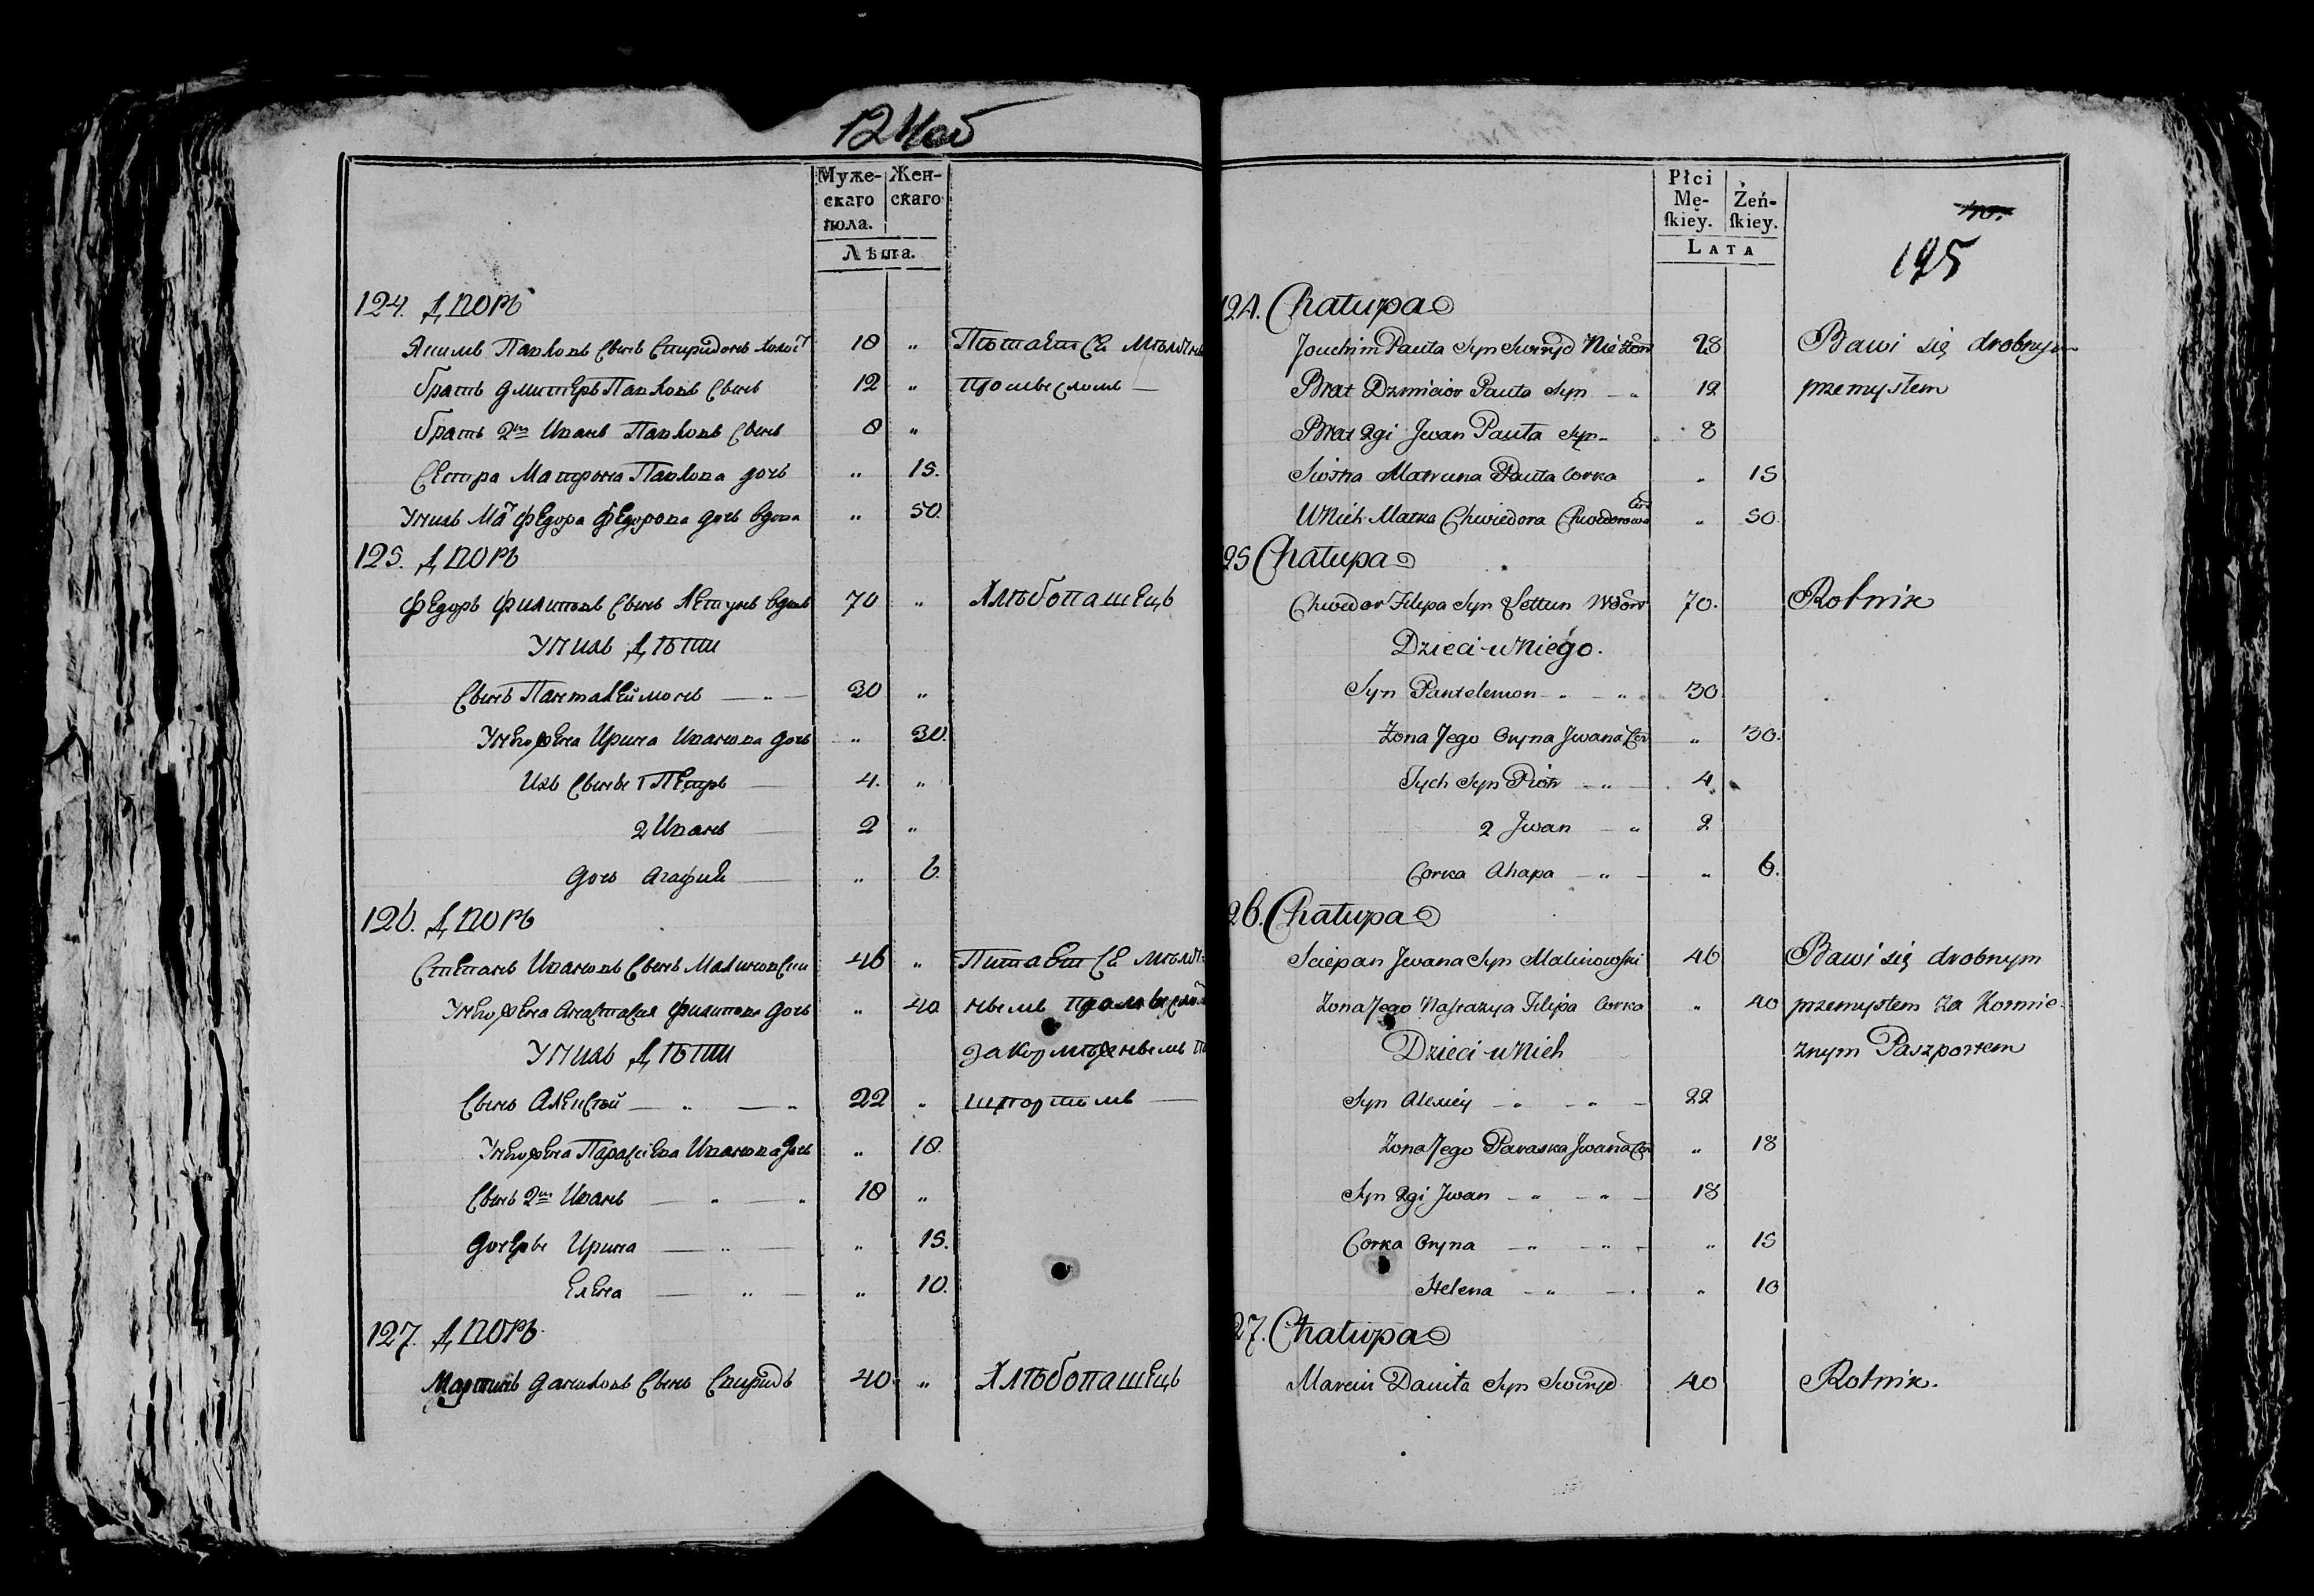 12 Ноя
Муже-
скаго
пола.
Жен-
скаго
Лѣта.
124. Дворъ
Якимъ Павловъ сынъ Спиридонъ холост 18 "
Питаетсѧ
братъ Дмитеръ Павловъ сынъ 12 "
промысломъ —
братъ 2й Иванъ Павловъ сынъ 8 "
сестра Матрина Павлова дочь " 15.
У нихъ Мат Федора Федорова дочь вдова " 50.
125. Дворъ
Федоръ Филиповъ сынъ Летунъ вдовъ 70 "
Хлѣбопашецъ
У нихъ Дѣти
Сынъ Панталеймонъ — " — 30 "
У него жена Ирина Иванова дочь " 30.
Ихъ сыны 1 Петръ — 4. "
2 Иванъ — 2 "
дочь Агафия — " 6.
126. Дворъ
Степанъ Ивановъ сынъ Малиновски 46 "
Питаетсѧ
У него жена Анастасия Филипова дочь " 40
нымъ промысло
У нихъ Дѣти
за кормежнымъ па
Сынъ Алексѣй — " — " 22 "
шпортомъ —
У него жена Парасиева Иванова дочь " 18.
Сынъ 2й Иванъ — " — " 18 "
дочеры Ирина — " — " 15.
Елена — " — " 10.
127. Дворъ
Мартинъ Даниловъ сынъ Свиридъ 40 "
Хлѣбопашецъ
Płci
Mę-
ſkiey.
Żeń-
ſkiey.
Lata
195
124. Chałupa
Jouchim Pauła Syn Swiryd Nieżon 28
Bawi się drobnym
Brat Dzmicior Pauła Syn — " 12
przemysłem
Brat 2gi Jwan Pauła Syn - 8
Siostra Matruna Pauła Corka " 15
U Nich Matka Chwiedora Chwedorowa " 50
125 Chałupa
Chwedor Filipa Syn Lettun Wdow 70.
Rolnik
Dzieci u Niego.
Syn Pantelemon - " - " 30
Żona Jego Oryna Jwana Cor " 30.
Tych Syn Piotr — " — 4
2 Jwan — " 2
Corka Ahapa — " — " 6.
126. Chałupa
Sciepan Jwana Syn Malinowski 46
Bawi się drobnym
Żona Jego Nastazya Filipa Corka " 40
przemysłem za Kormie-
Dzieci u Nich
żnym Paszportem
Syn Alexiey — " — " — 22
Żona Jego Paraska Jwana Cor " 18
Syn 2gi Jwan — " — " — 18
Corka Oryna — " — " — " 15
Helena — " — " 10
127. Chałupa
Marcin Daniła Syn Swiryd 40
Rolnik.